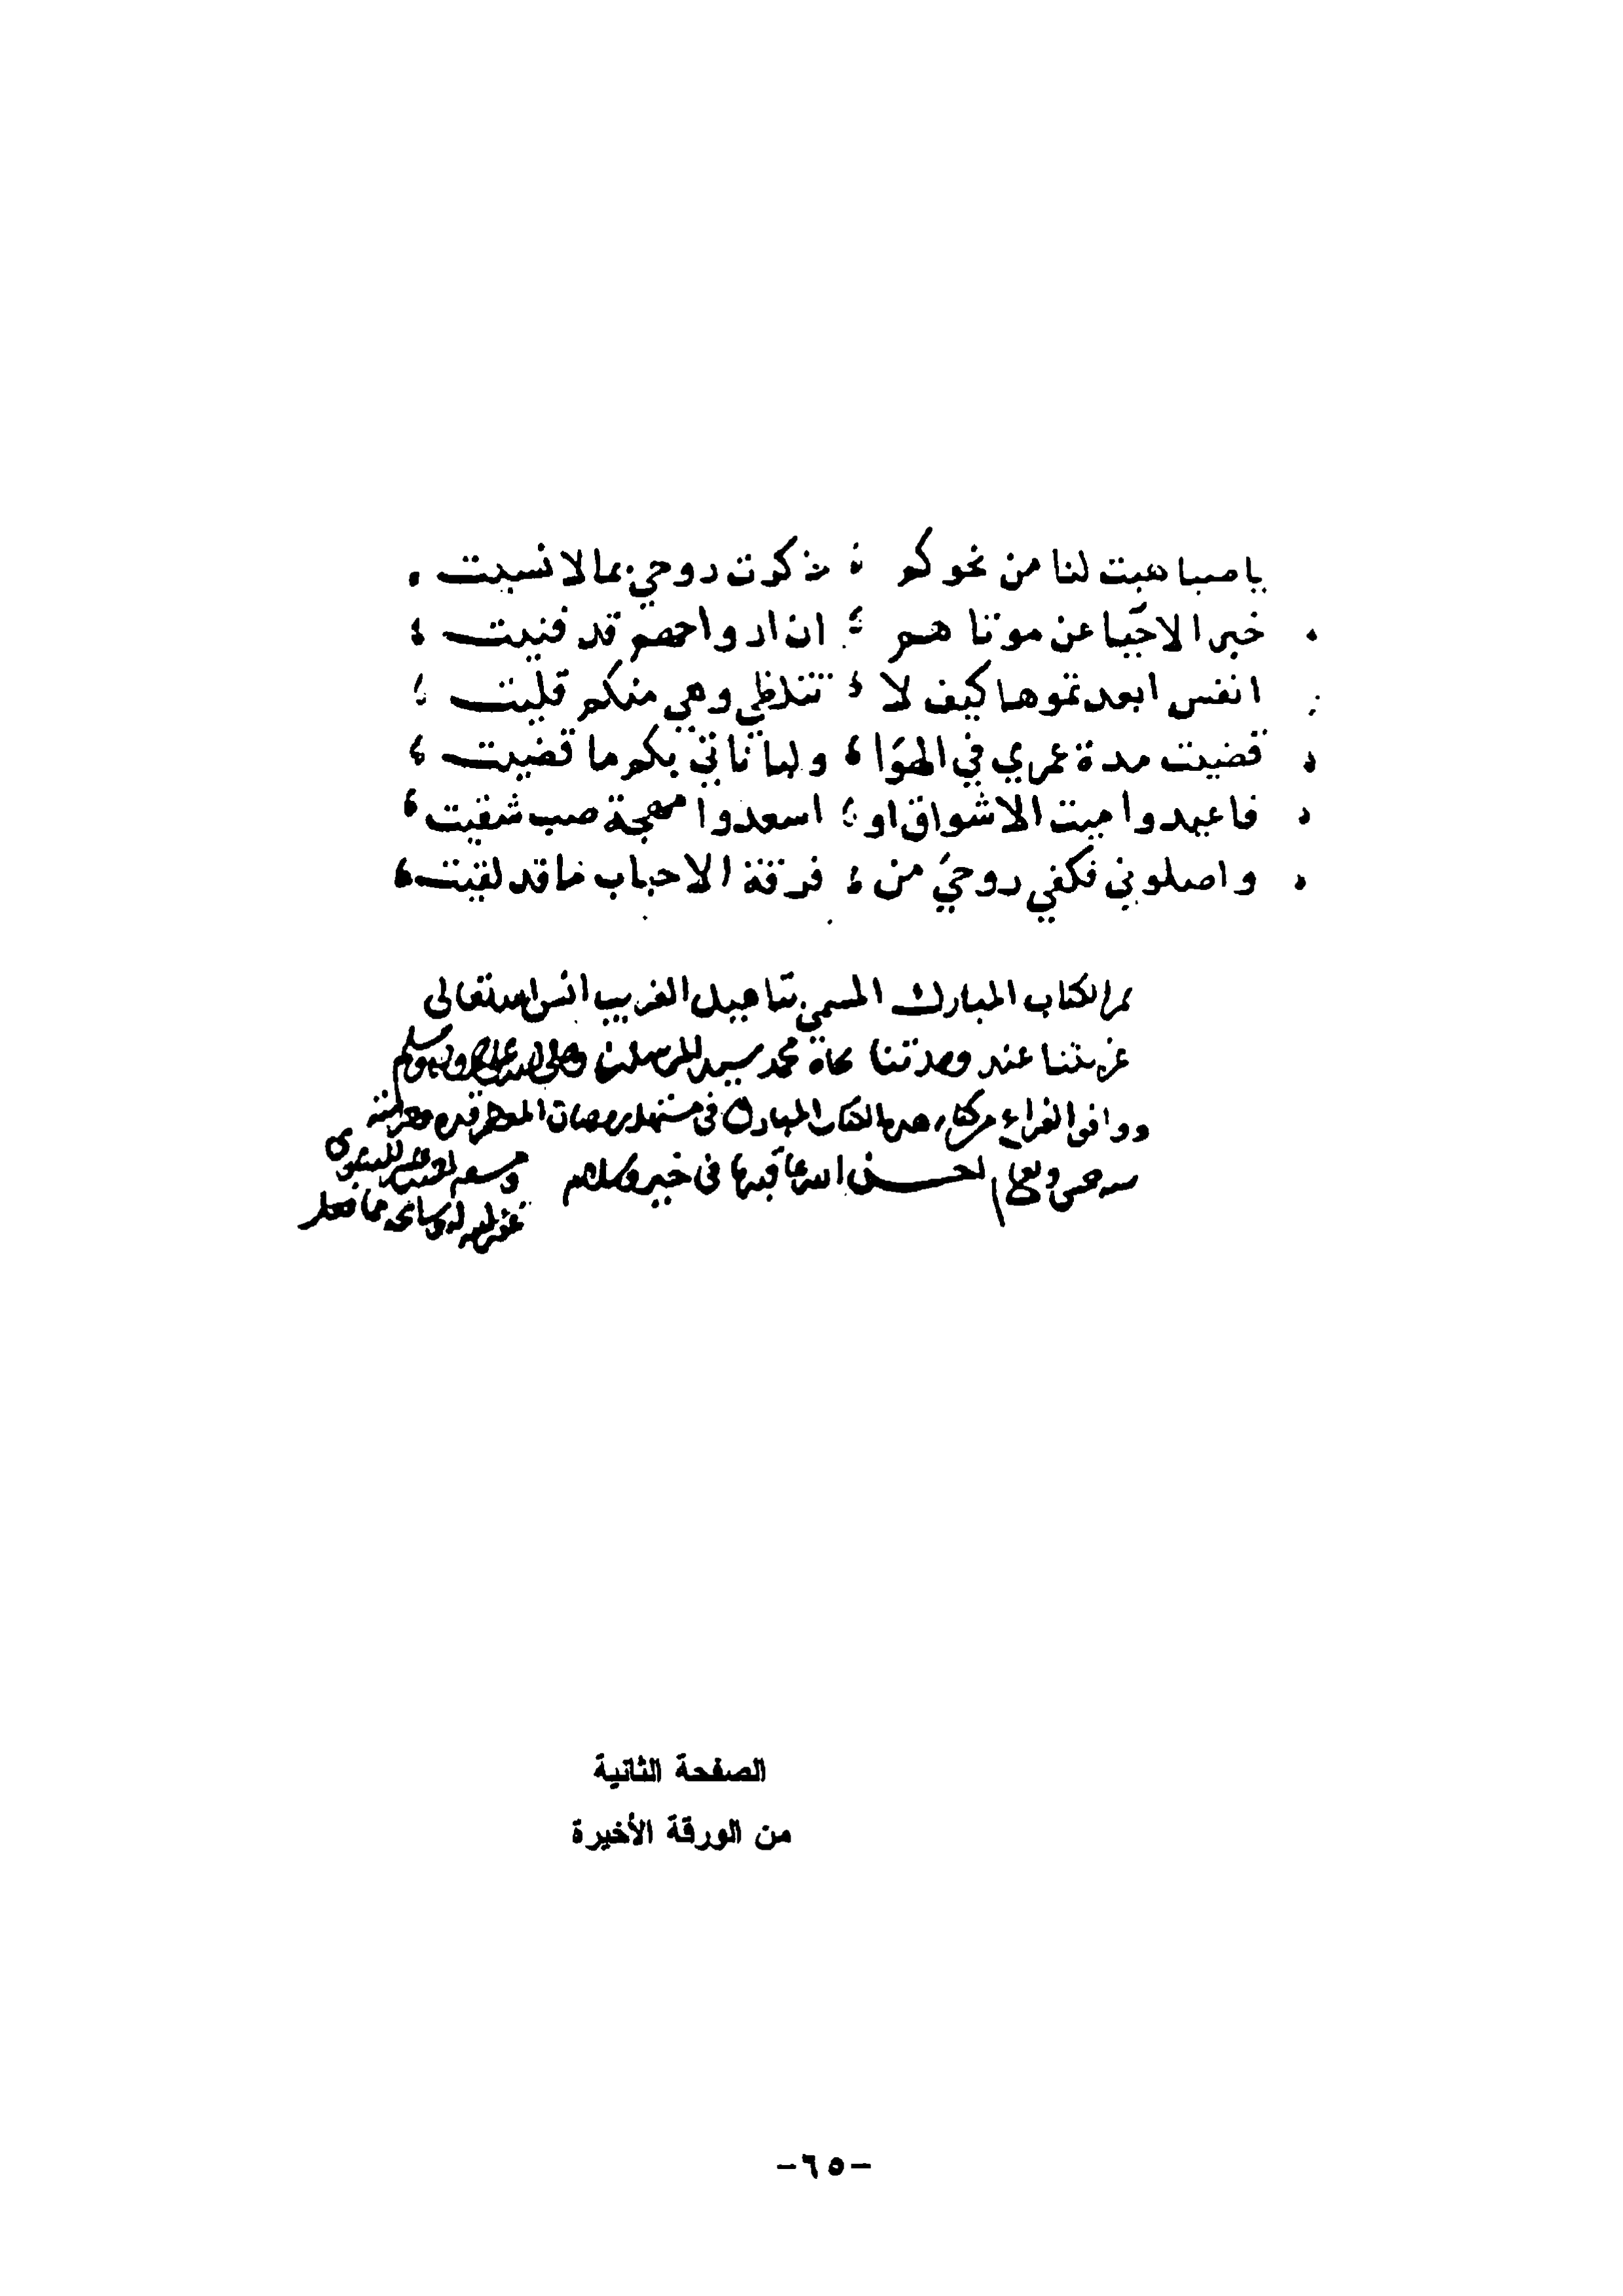 يا صبا هبت لنا من نحوكم ذكرت روحي بما لا نسيت
خبر الاحيا عن موتاهم ان ارواحهم قد فنيت
انفس ابعدتموها كيف لا تتلظي وهي منكم قليت
قضيت مدة عمري في الهوا ولباناتي بكم ما قضيت
فاعيدوا ميت الاشواق او اسعدوا مهجة صب شقيت
واصلوني فكفي روحي من فرقة الاحباب ما قد لقيت
تم الكتاب المبارك المسمي بتاهيل الغريب انس الله تعالى
غربتنا عند وحدتنا بجاه محمد سيد المرسلين وصلى الله عليه وسلم
ووافق الفراغ من كتابة هذا الكتاب المبارك في مستهل رمضان المعظم قدره وحرمته
احسن الله عاقبتها في خير وسلامة
الصفحة الثانية
من الورقة الأخيرة
-٦٥-